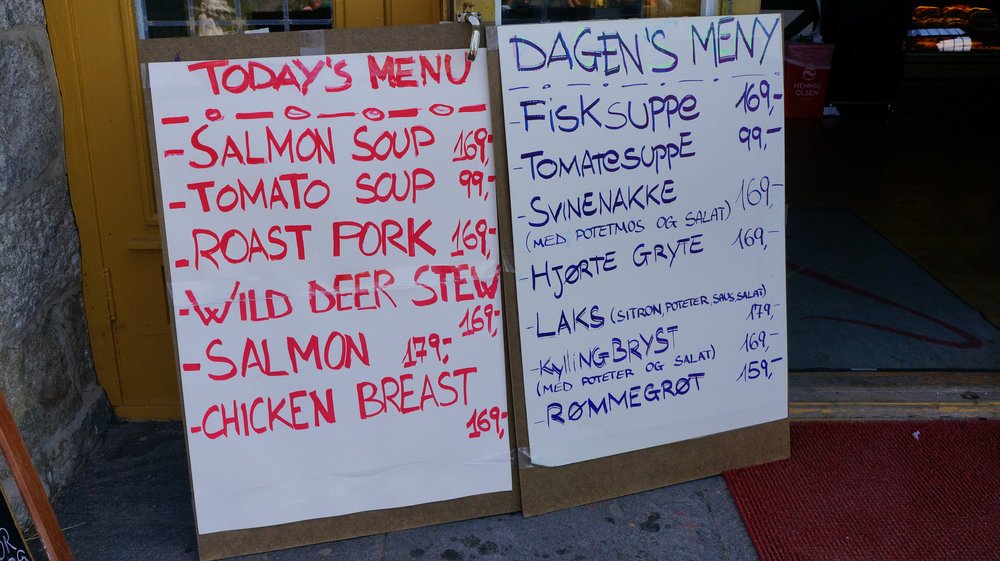 TODAY'S MENU
- SALMON SOUP 169,-
- TOMATO SOUP 99,-
- ROAST PORK 169,-
- WILD DEER STEW
169,-
- SALMON 179,-
- CHICKEN BREAST
169,-
DAGEN'S MENY
- FISKSUPPE 169,-
- TOMATESUPPE 99,-
- SVINENAKKE 169,-
(MED POTETMOS OG SALAT)
- HJØRTE GRYTE 169,-
- LAKS (SITRON, POTETER, SAUS, SALAT)
179,-
- KYLLINGBRYST 169,-
(MED POTETER OG SALAT)
- RØMMEGRØT 159,-
HENNIG
OLSEN